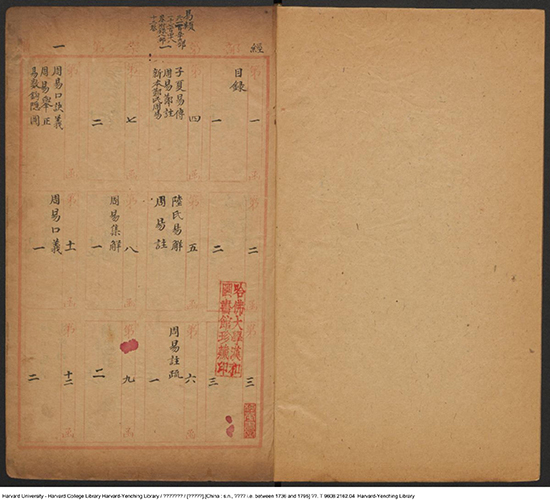 經
一
易類
目錄
一
二
三
一
二
三
子夏易傳
周易鄭註
新本鄭氏周易
四
陸氏易解
周易註
五
周易註疏
六
一
七
二
周易集解
八
一
九
二
周易口訣義
周易舉正
易數鉤隱圖
周易口義
十一
一
十二
二
哈佛大學漢和
圖書館珍藏印
Harvard University - Harvard College Library Harvard-Yenching Library / ??????? / [?????].[China : s.n., ???? i.e. between 1736 and 1795] ??. T 9608 2142.04 Harvard-Yenching Library